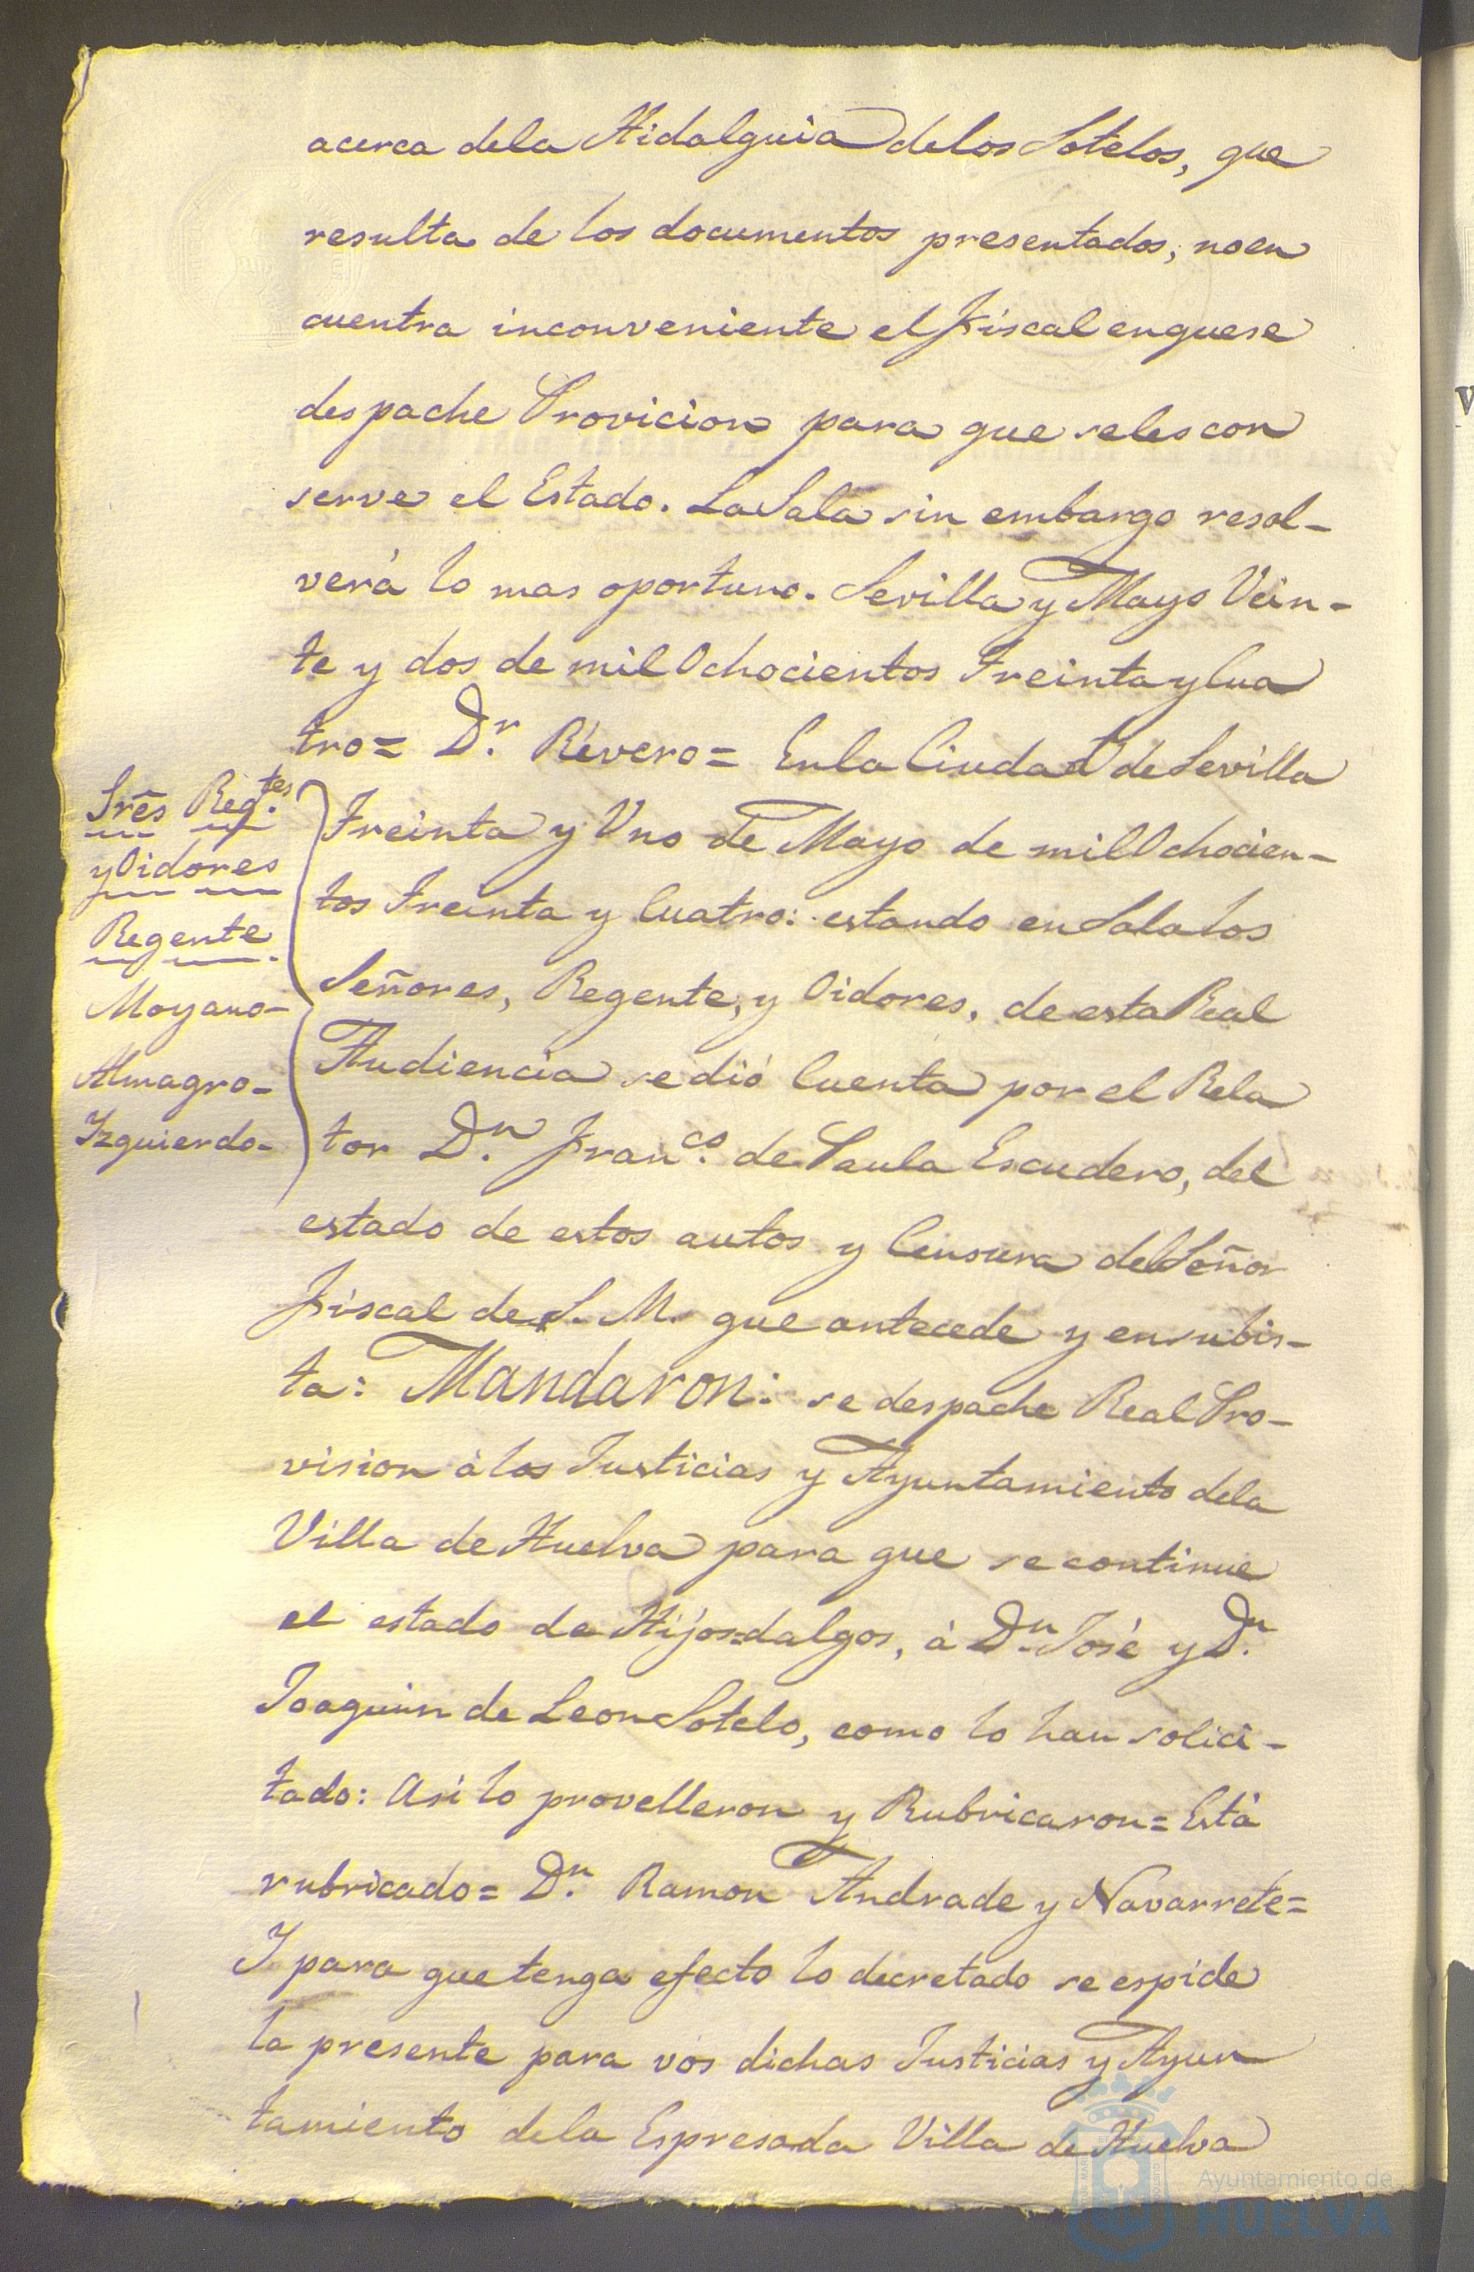 acerca dela Hidalguia delos Sotelos, que
resulta de los documentos presentados, noen
cuentra inconveniente el Fiscal enquese
despache Provicion para que selescon
serve el Estado. La Sala sin embargo resol-
verá lo mas oportuno. Sevilla y Mayo Vein-
te y dos de mil Ochocientos Treinta y Cua
tro= D.r Rivero= Enla Ciudad de Sevilla
Sres Reg.tes
y Oidores
Regente
Moyano-
Almagro-
Izquierdo-
Treinta y Uno de Mayo de mil Ochocien-
tos Treinta y Cuatro: estando en Sala los
Señores, Regente, y Oidores, de esta Real
Audiencia se dió Cuenta por el Rela
tor D.n Fran.co de Paula Escudero, del
estado de estos autos y Censura del Señor
Fiscal de S. M. que antecede y en subis-
ta: Mandaron: se despache Real Pro-
vision á las Justicias y Ayuntamiento dela
Villa de Huelva para que se continue
el estado de Hijos=dalgos, á D.n José y D.n
Joaquin de Leon Sotelo, como lo han solici-
tado: Asi lo provelleron y Rubricaron= Está
rubricado= D.n Ramon Andrade y Navarrete=
Y para que tenga efecto lo decretado se espide
la presente para vós dichas Justicias y Ayun
tamiento dela Espresada Villa de Huelva
Ayuntamiento de
HUELVA